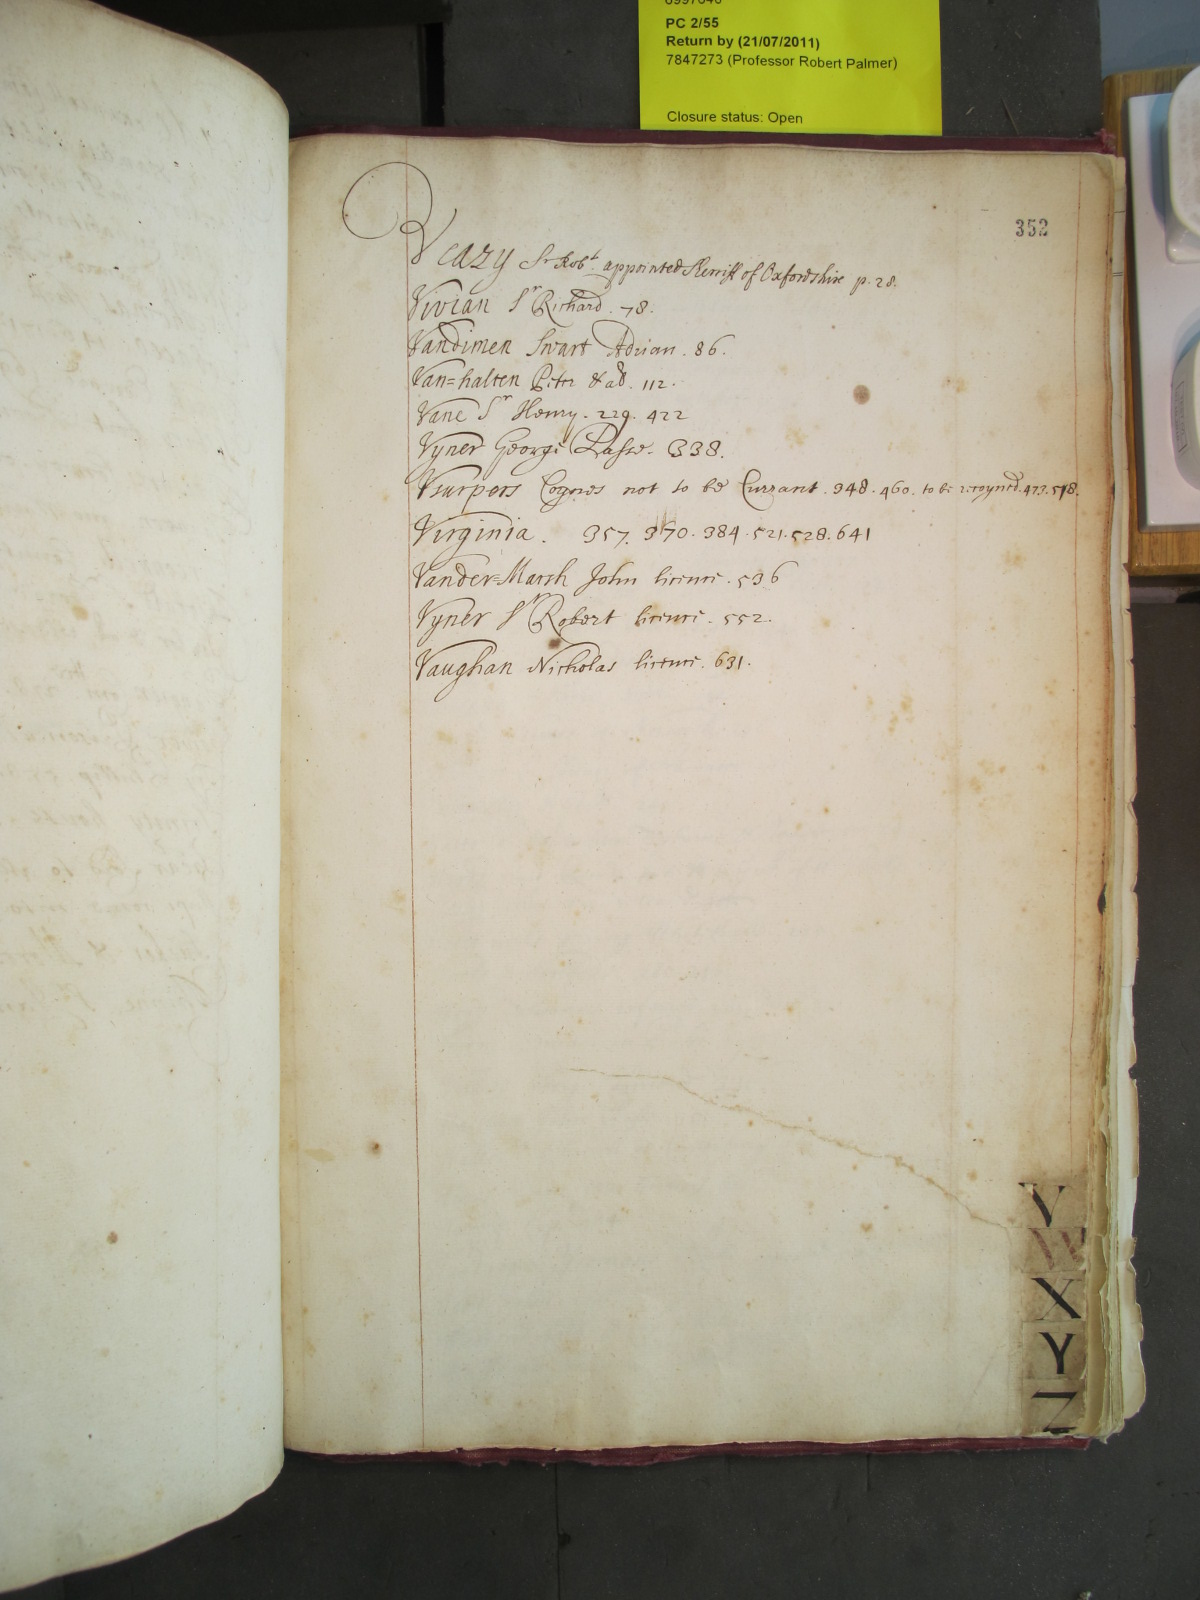 PC 2/55
Return by (21/07/2011)
7847273 (Professor Robert Palmer)
Closure status: Open
352
Veazy Sr Robt. appointed Sherriff of Oxfordshire p. 28.
Vivian Sr Richard. 78.
Vandimen Swart Adrian. 86.
Van=halten Peter & ad. 112.
Vane Sr Henry. 229. 422
Vyner George Passe. 338.
Vsurpers Coynes not to be Currant. 348. 460. to be recoyned. 473. 518.
Virginia. 357. 370. 384. 521. 528. 641
Vander=Marsh John licence. 536
Vyner Sr Robert licence. 552.
Vaughan Nicholas licence. 631.
V
W
X
Y
Z